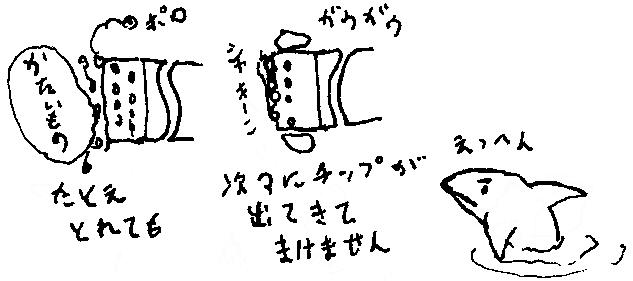 ポロ
かたいもの
たとえ
とれても
ガウガウ
シャキーン
次々にチップが
出てきて
まけません
えっへん